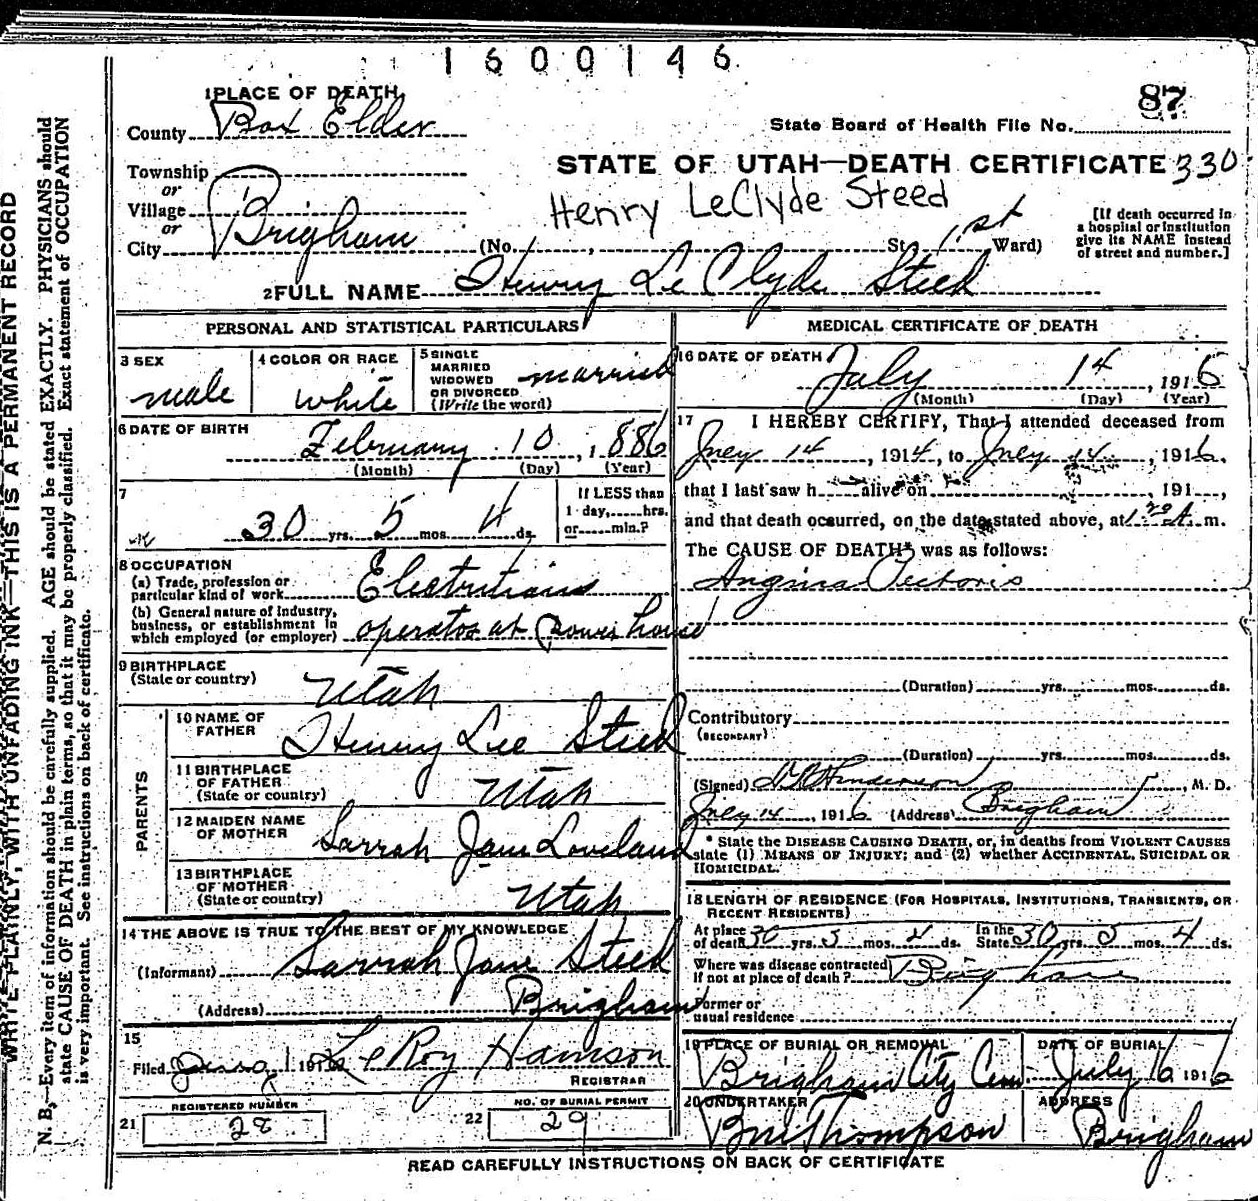 1600146
87
1 PLACE OF DEATH
County Box Elder
State Board of Health File No.
Township
or
Village
or
City Brigham
STATE OF UTAH—DEATH CERTIFICATE 330
Henry LeClyde Steed
(No. , St 1st Ward)
[If death occurred in
a hospital or institution
give its NAME instead
of street and number.]
2 FULL NAME Henry Le Clyde Steed
PERSONAL AND STATISTICAL PARTICULARS
3 SEX
male
4 COLOR OR RACE
white
5 SINGLE
MARRIED
WIDOWED
OR DIVORCED
(Write the word)
married
6 DATE OF BIRTH
February 10, 1886
(Month) (Day) (Year)
7
30 yrs. 5 mos. 4 ds.
If LESS than
1 day, hrs.
or min.?
8 OCCUPATION
(a) Trade, profession or
particular kind of work
Electritians
(b) General nature of industry,
business, or establishment in
which employed (or employer)
operator at power house
9 BIRTHPLACE
(State or country)
Utah
PARENTS
10 NAME OF
FATHER
Henry Lee Steed
11 BIRTHPLACE
OF FATHER
(State or country)
Utah
12 MAIDEN NAME
OF MOTHER
Sarrah Jane Loveland
13 BIRTHPLACE
OF MOTHER
(State or country)
Utah
14 THE ABOVE IS TRUE TO THE BEST OF MY KNOWLEDGE
(Informant) Sarrah Jane Steed
(Address) Brigham
15
Filed 191 LeRoy Hamson
REGISTRAR
REGISTERED NUMBER
21 28
NO. OF BURIAL PERMIT
22 29
MEDICAL CERTIFICATE OF DEATH
16 DATE OF DEATH
July 14, 1916
(Month) (Day) (Year)
17 I HEREBY CERTIFY, That I attended deceased from
July 14, 1914, to July 14, 1916,
that I last saw h alive on , 191 ,
and that death occurred, on the date stated above, at 1 A m.
The CAUSE OF DEATH* was as follows:
Angina Pectoris
(Duration) yrs. mos. ds.
Contributory
(SECONDARY)
(Duration) yrs. mos. ds.
(Signed) Henderson, M. D.
July 14, 1916 (Address) Brigham
* State the DISEASE CAUSING DEATH, or, in deaths from VIOLENT CAUSES
state (1) MEANS OF INJURY; and (2) whether ACCIDENTAL, SUICIDAL OR
HOMICIDAL.
18 LENGTH OF RESIDENCE (FOR HOSPITALS, INSTITUTIONS, TRANSIENTS, OR
RECENT RESIDENTS)
At place
of death 30 yrs. 5 mos. 4 ds.
In the
State 30 yrs. 5 mos. 4 ds.
Where was disease contracted
if not at place of death? Brigham
Former or
usual residence
19 PLACE OF BURIAL OR REMOVAL
Brigham City Cem.
DATE OF BURIAL
July 16 1916
20 UNDERTAKER
Thompson
ADDRESS
Brigham
READ CAREFULLY INSTRUCTIONS ON BACK OF CERTIFICATE
WRITE PLAINLY, WITH UNFADING INK—THIS IS A PERMANENT RECORD
N. B.—Every item of information should be carefully supplied. AGE should be stated EXACTLY. PHYSICIANS should
state CAUSE OF DEATH in plain terms, so that it may be properly classified. Exact statement of OCCUPATION
is very important. See instructions on back of certificate.